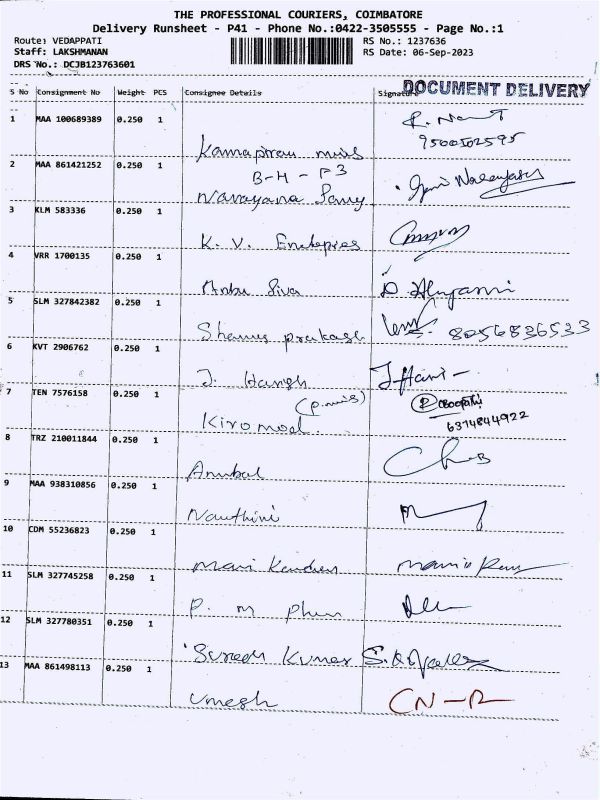 THE PROFESSIONAL COURIERS, COIMBATORE
Delivery Runsheet - P41 - Phone No.:0422-3505555 - Page No.:1
Route: VEDAPPATI RS No.: 1237636
Staff: LAKSHMANAN RS Date: 06-Sep-2023
DRS No.: DCJB123763601
DOCUMENT DELIVERY
S No Consignment No Weight PCS Consignee Details Signature
1 MAA 100689389 0.250 1
9500502595
2 MAA 861421252 0.250 1 B-H-F3
Narayana Samy
3 KLM 583336 0.250 1 K. V. Enterpries
4 VRR 1700135 0.250 1 Anbu Siva
5 SLM 327842382 0.250 1 prakash 8056836533
6 KVT 2906762 0.250 1 J. Harish J Hari
7 TEN 7576158 0.250 1 (P. mis)
6374844922
8 TRZ 210011844 0.250 1
9 MAA 938310856 0.250 1 Nanthini
10 CDM 55236823 0.250 1 Mari
11 SLM 327745258 0.250 1 P. M
12 SLM 327780351 0.250 1 Suresh Kumar
13 MAA 861498113 0.250 1 Umesh CN-R